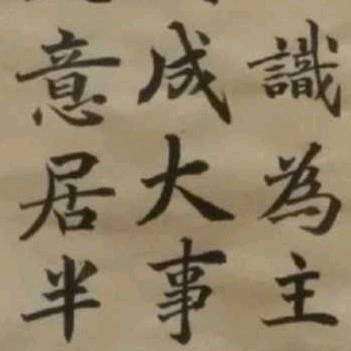 識為主
成大事
意居半